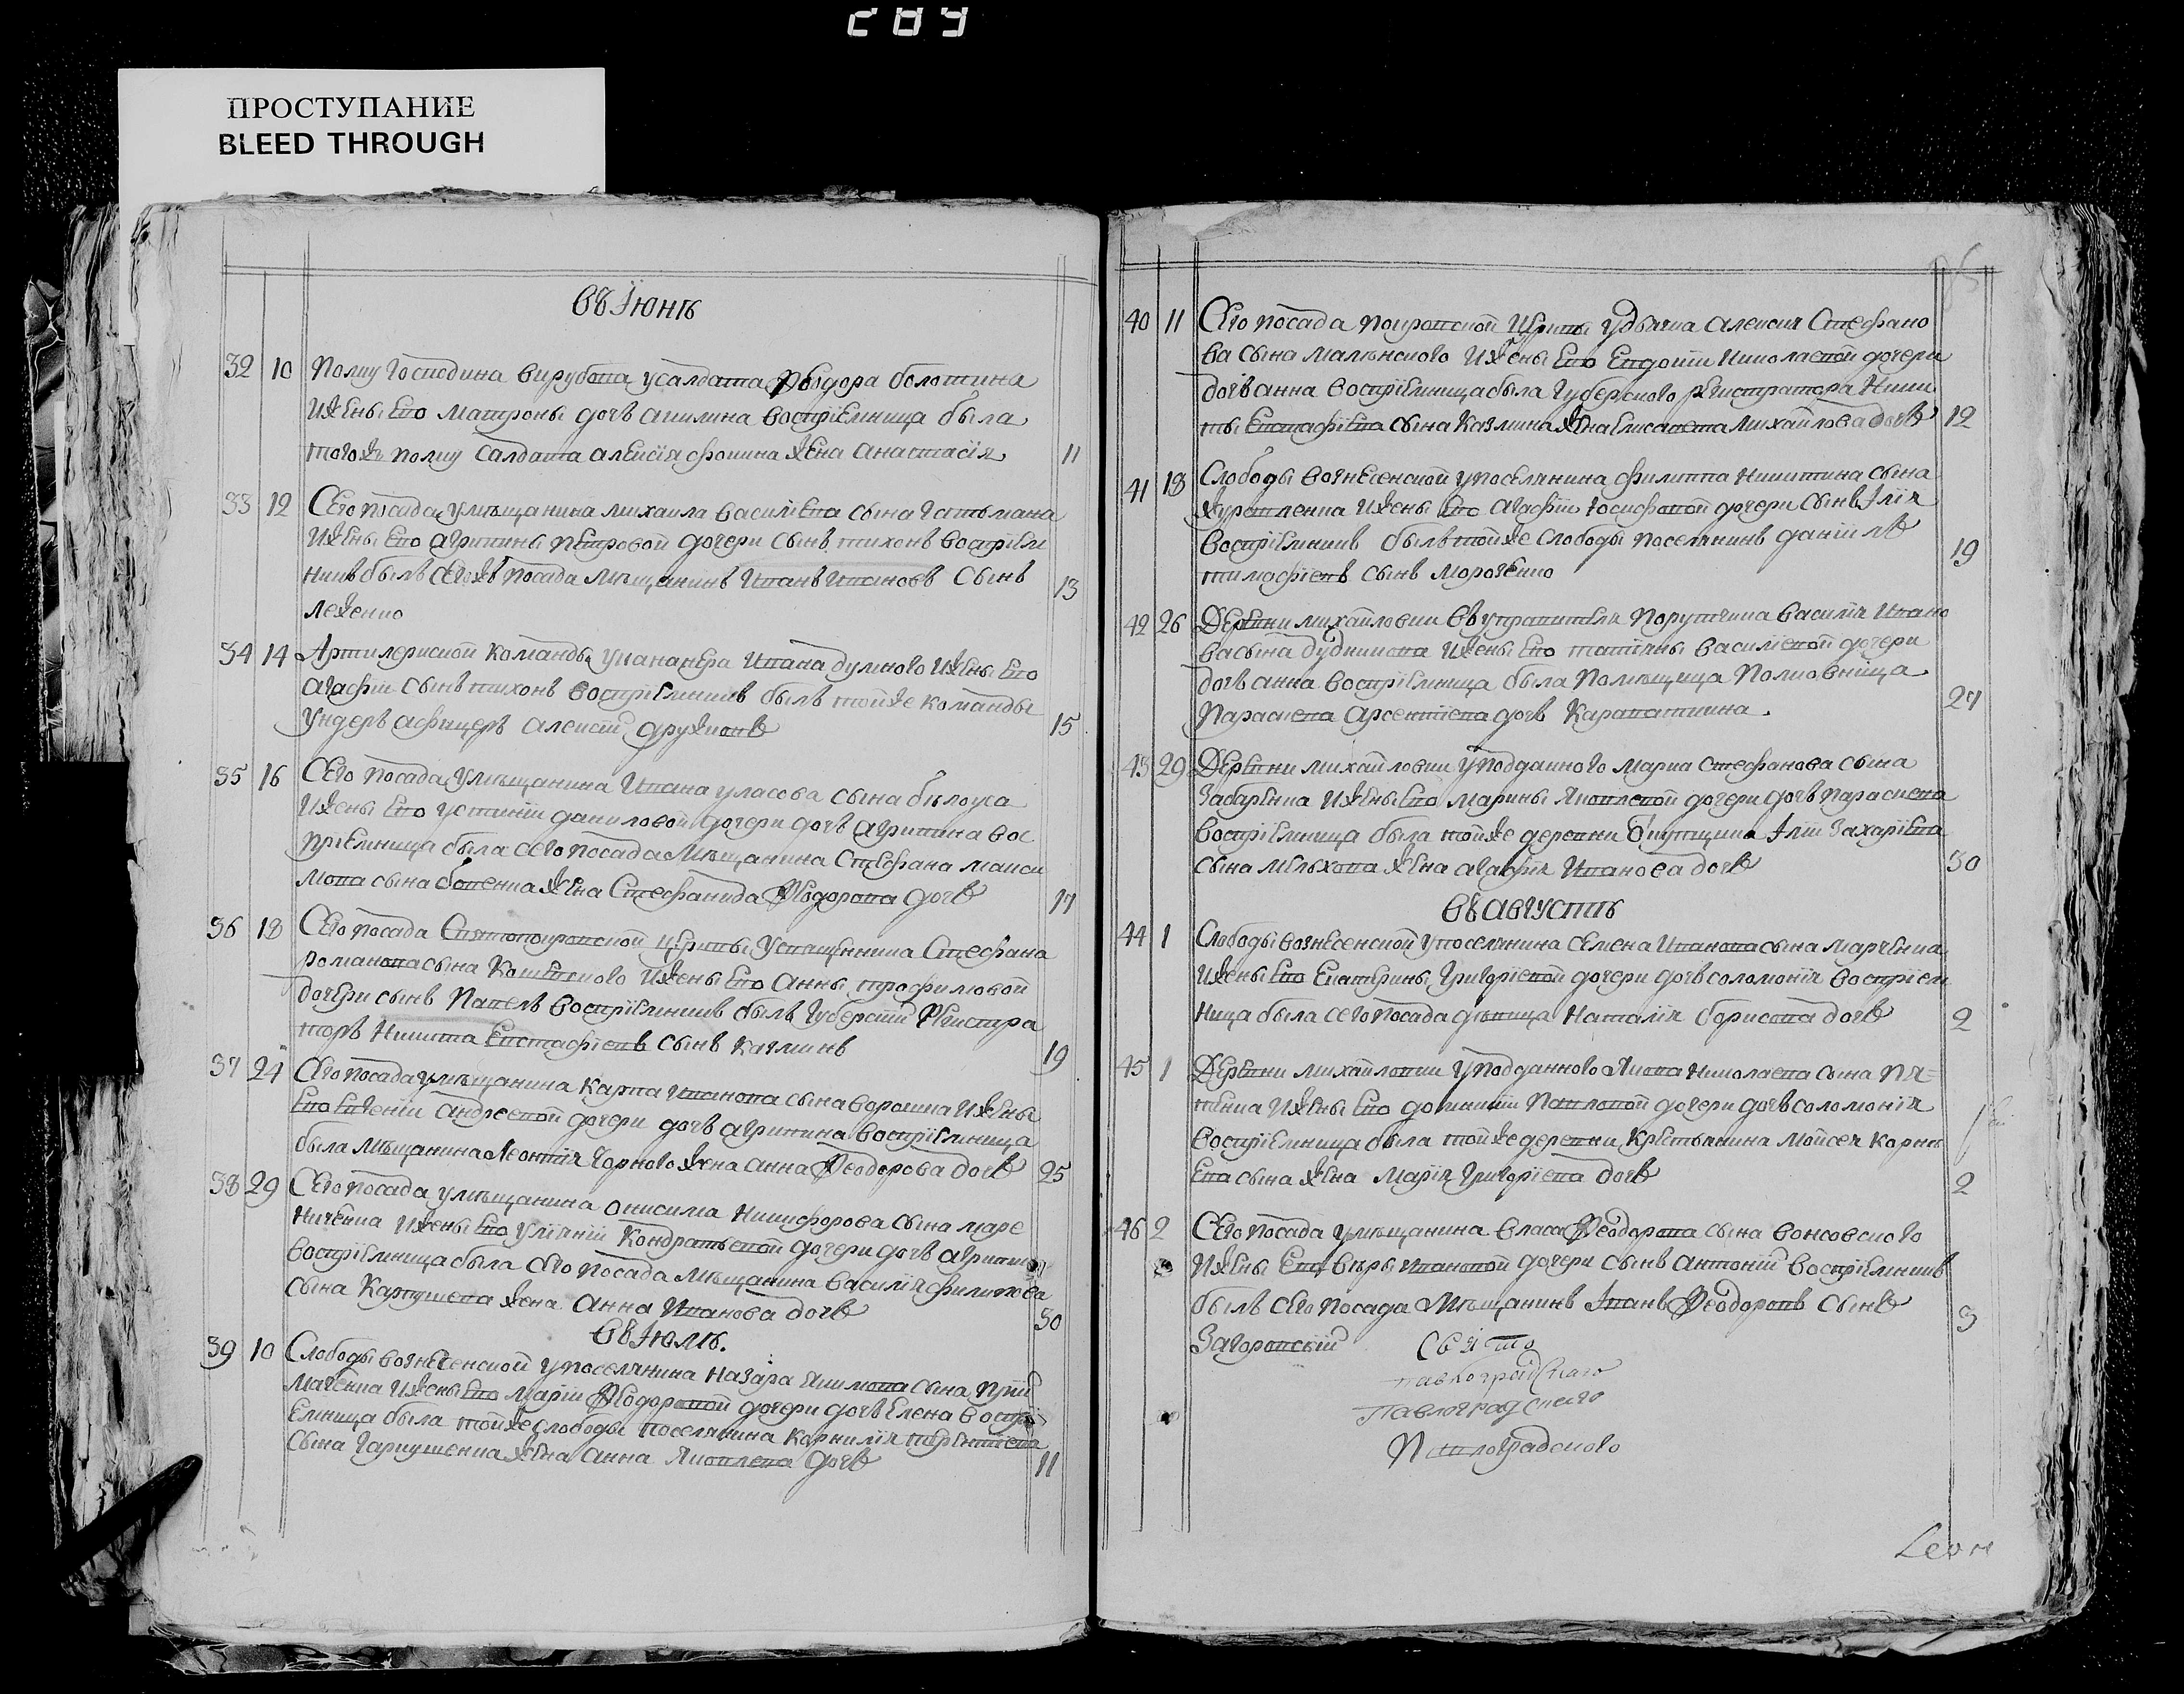 289
ПРОСТУПАНИЕ
BLEED THROUGH
Въ Iюнѣ
32 10 Полку Господина Вирубова усалдата Феодора болотина
Ижены Его Матроны дочь акилина Воспрiемница была
тогожъ полку Салдата алеѯiя фокина жена Анастасiя 11
33 12 Сего посада умѣщанина михаила василiева сына гатьмана
Ижены Его агрипины петровой дочери сынъ тихонъ воспрiем
никъ былъ сегожъ посада мѣщанинъ Иванъ Ивановъ Сынъ 13
леженко
34 14 Артилериской Команды уканонера Ивана думного Ижены Его
Агафiи сынъ тихонъ воспрiемникъ былъ тойже команды
Ундеръ афицеръ Алексiй дружковъ 15
35 16 Сего посада умѣщанина Ивана уласова сына бѣлоуса
Ижены Его устинiи даниловой дочери дочь агрипина вос
прiемница была сего посада мѣщанина Стефана макси
мова сына бовенка жена Стефанида Феодорова дочь 17
36 18 Сего посада Святопокровской церквы Усвященника Стефана
романова сына Кошевского Ижены Его Анны трофиловой
дочери сынъ Павелъ воспрiемникъ былъ Губерскiй Регистра
торъ Никита Евстафiевъ сынъ казминъ 19
37 24 Сего посада умѣщанина Карпа Иванова сына ворошка Ижены
Его Евгенiи Андреевой дочери дочь агрипина воспрiемница
была мѣщанина Леонтiя Чорного жена анна Феодорова дочь 25
38 29 Сего посада умѣщанина онисима Никифорова сына маре
ниченка Ижены Его Улiянiи Кондратьевой дочери дочь агрипина
воспрiемница была сего посада мѣщанина василiя филипова
сына Карпушева жена Анна Иванова дочь 30
Въ Iюлѣ.
39 10 Слободы вознесенской упоселянина назара якимова сына прий
маченка Ижены Его марiи Феодоровой дочери дочь Елена воспрi
емница была тойже слободы поселянина Корнилiя терентiева
сына гаркушенка жена анна яковлева дочь 11
40 11 Сего посада покровской Церквы удьячка алексея Стефано
ва сына малинского Ижены Его Евдокiи Николаевой дочери
дочь анна воспрiемница была Губерского регистратора Ники
ты Евстафiева сына Казмина жена Елисавета Михайлова дочь 12
41 18 Слободы вознесенской упоселянина филиппа никитина сына
журавленка Ижены Его агафiи Iосифовой дочери сынъ Iлiя
воспрiемникъ былъ тойже слободы поселянинъ данiилъ 19
тимафiевъ сынъ мороченко
42 26 Деревни михайловки Въ управителя Порутчика василiя Ивано
ва сына дудникова Ижены Его татiяны василiевой дочери
дочь анна воспрiемница была Помѣщица Полковнiца
Параскева Арсентiева дочь Караваткина. 27
43 29 Деревни михайловки уподданного марка Стефанова сына
Забаренка Ижены Его марины яковлевой дочери дочь параскева
воспрiемница была тойже деревни Iлiи Захарiева
сына мелхова жена агафiя Иванова дочь 30
Въ Августѣ
44 1 Слободы вознесенской упоселянина семена Иванова сына марченка
Ижены Его Екатерины григорiевой дочери дочь соломонiя воспрiем
ница была сего посада дѣвица наталiя борисова дочь 2
45 1 Деревни михайловки уподданного якова николаева сына пя=
тенка Ижены Его домникiи Павловой дочери дочь соломонiя
воспрiемница была тойже деревни крестьянина мойсея корни
ева сына жена марiя григорiева дочь 2
46 2 Сего посада умѣщанина власа Феодорова сына вонсовского
Ижены Его вѣры Ивановой дочери сынъ антонiй воспрiемникъ
былъ сего посада мѣщанинъ Iванъ Феодоровъ Сынъ 3
Загоровскiй
Павлоградскаго
Павлоградского